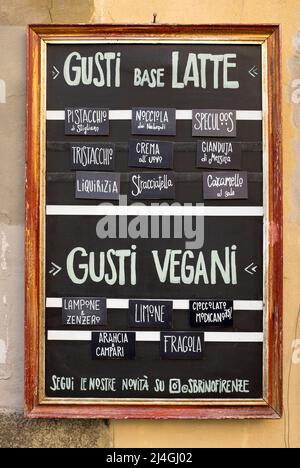 GUSTI BASE LATTE
PISTACCHIO
di Stigliano
NOCCIOLA
dei Nebrodi
SPECULOOS
TRISTACCHIO
CREMA
all'uovo
GIANDUIA
di Messina
LIQUIRIZIA
STRACCIATELLA
CARAMELLO
al sale
GUSTI VEGANI
LAMPONE
& ZENZERO
LIMONE
CIOCCOLATO
MODICANO
ARANCIA
& CAMPARI
FRAGOLA
SEGUI LE NOSTRE NOVITÀ SU @SBRINOFIRENZE
alamy
Image ID: 2J4GJ02
www.alamy.com